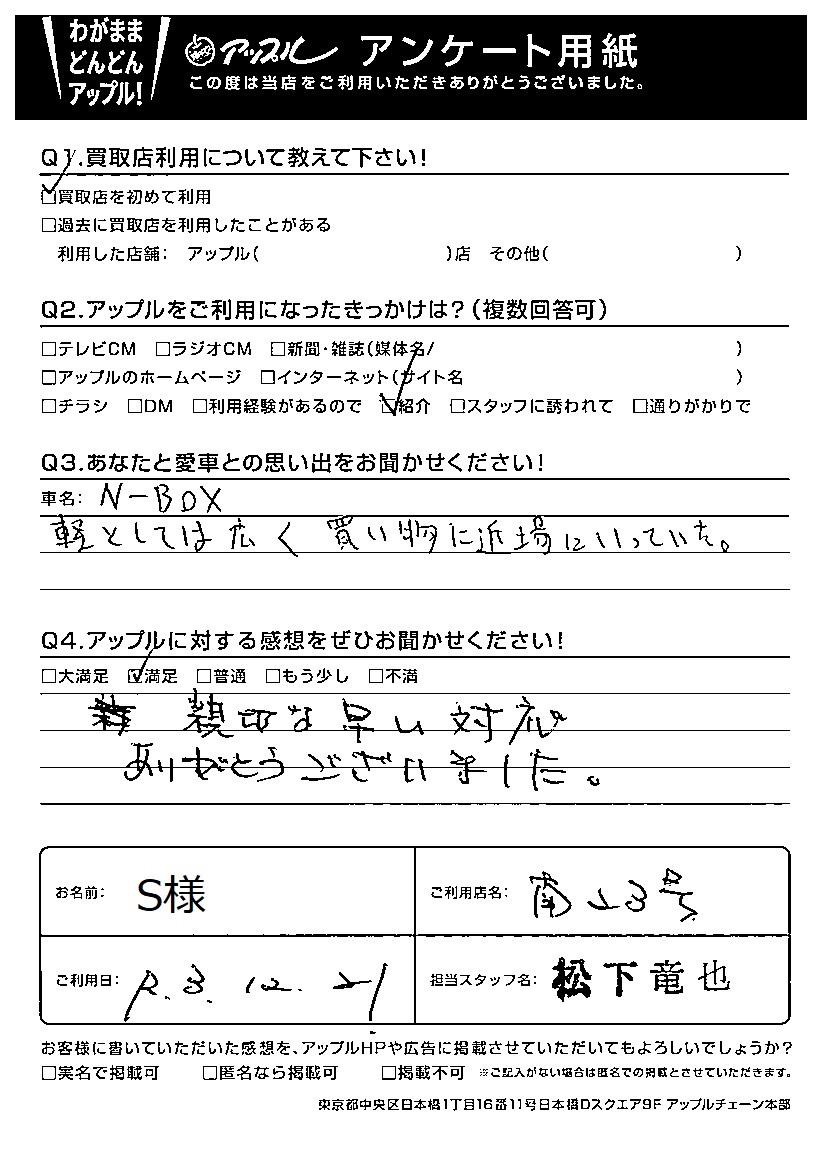 わがまま
どんどん
アップル!
アップル アンケート用紙
この度は当店をご利用いただきありがとうございました。
Q1.買取店利用について教えて下さい!
☑買取店を初めて利用
□過去に買取店を利用したことがある
利用した店舗: アップル( )店 その他( )
Q2.アップルをご利用になったきっかけは?(複数回答可)
□テレビCM □ラジオCM □新聞・雑誌(媒体名/ )
□アップルのホームページ □インターネット(サイト名 )
□チラシ □DM □利用経験があるので ☑紹介 □スタッフに誘われて □通りがかりで
Q3.あなたと愛車との思い出をお聞かせください!
車名: N-BOX
軽としては広く 買い物に近場にいっていた。
Q4.アップルに対する感想をぜひお聞かせください!
□大満足 ☑満足 □普通 □もう少し □不満
親切な早い対応
ありがとうございました。
お名前: S様
ご利用店名: 南23号
ご利用日: R.3.12.21
担当スタッフ名: 松下竜也
お客様に書いていただいた感想を、アップルHPや広告に掲載させていただいてもよろしいでしょうか?
□実名で掲載可 □匿名なら掲載可 □掲載不可 ※ご記入がない場合は匿名での掲載とさせていただきます。
東京都中央区日本橋1丁目16番11号日本橋Dスクエア9F アップルチェーン本部